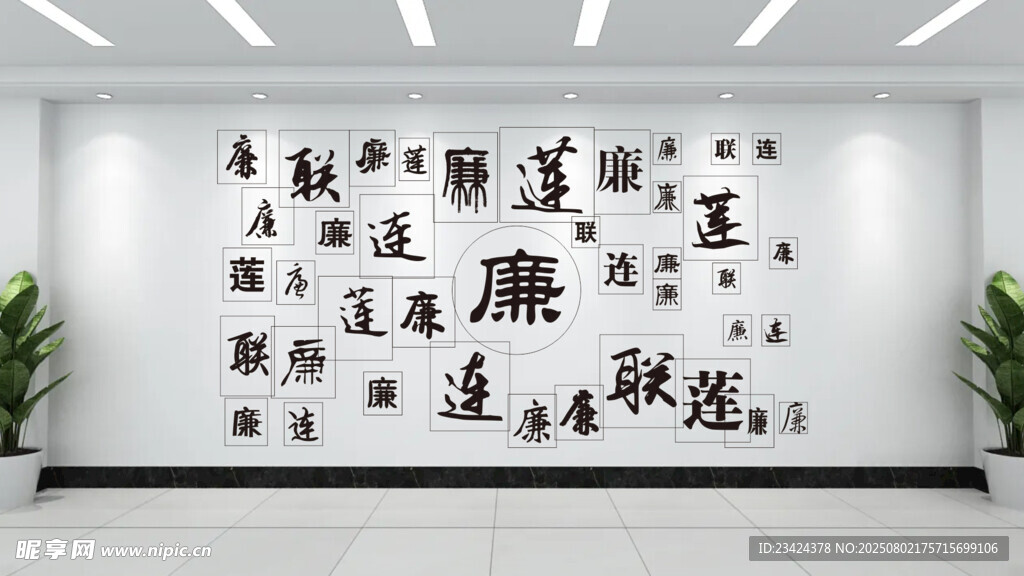 廉 联 廉 莲 廉 莲 廉 廉 联 连
廉 廉 连 联 廉 莲
莲 廉 廉 连 廉 联 廉
莲 廉 廉
联 廉 廉 连
廉 连 联 莲
廉 连 廉 廉 廉 廉
昵享网 www.nipic.cn
ID:23424378 NO:20250802175715699106